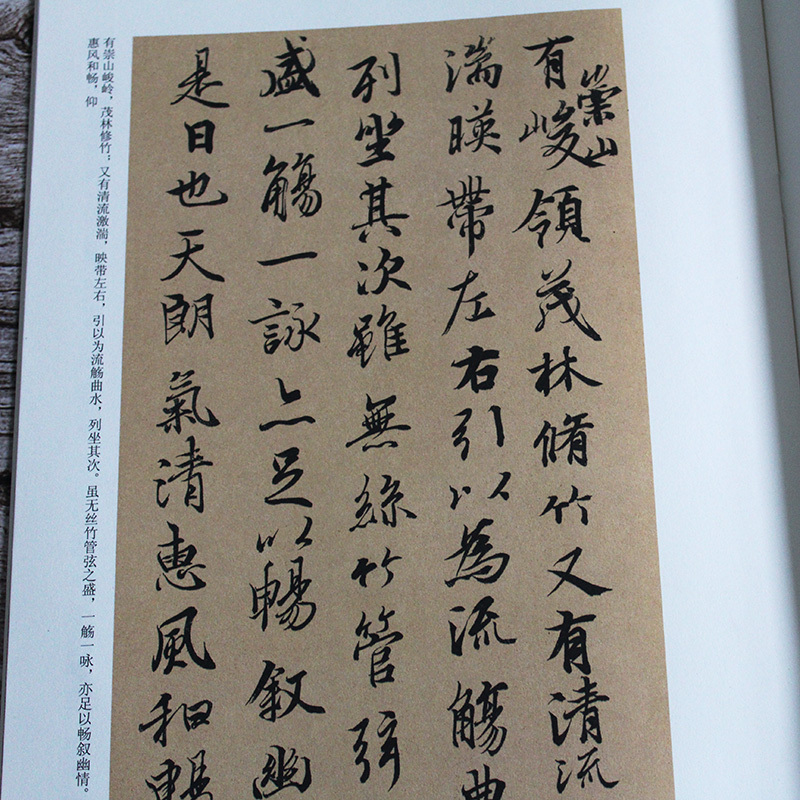 有崇山峻領茂林脩竹又有清流
湍暎帶左右引以為流觴曲
列坐其次雖無絲竹管弦
盛一觴一詠亦足以暢叙幽
是日也天朗氣清惠風和暢
有崇山峻岭，茂林修竹；又有清流激湍，映带左右，引以为流觞曲水，列坐其次。虽无丝竹管弦之盛，一觞一咏，亦足以畅叙幽情。
惠风和畅，仰